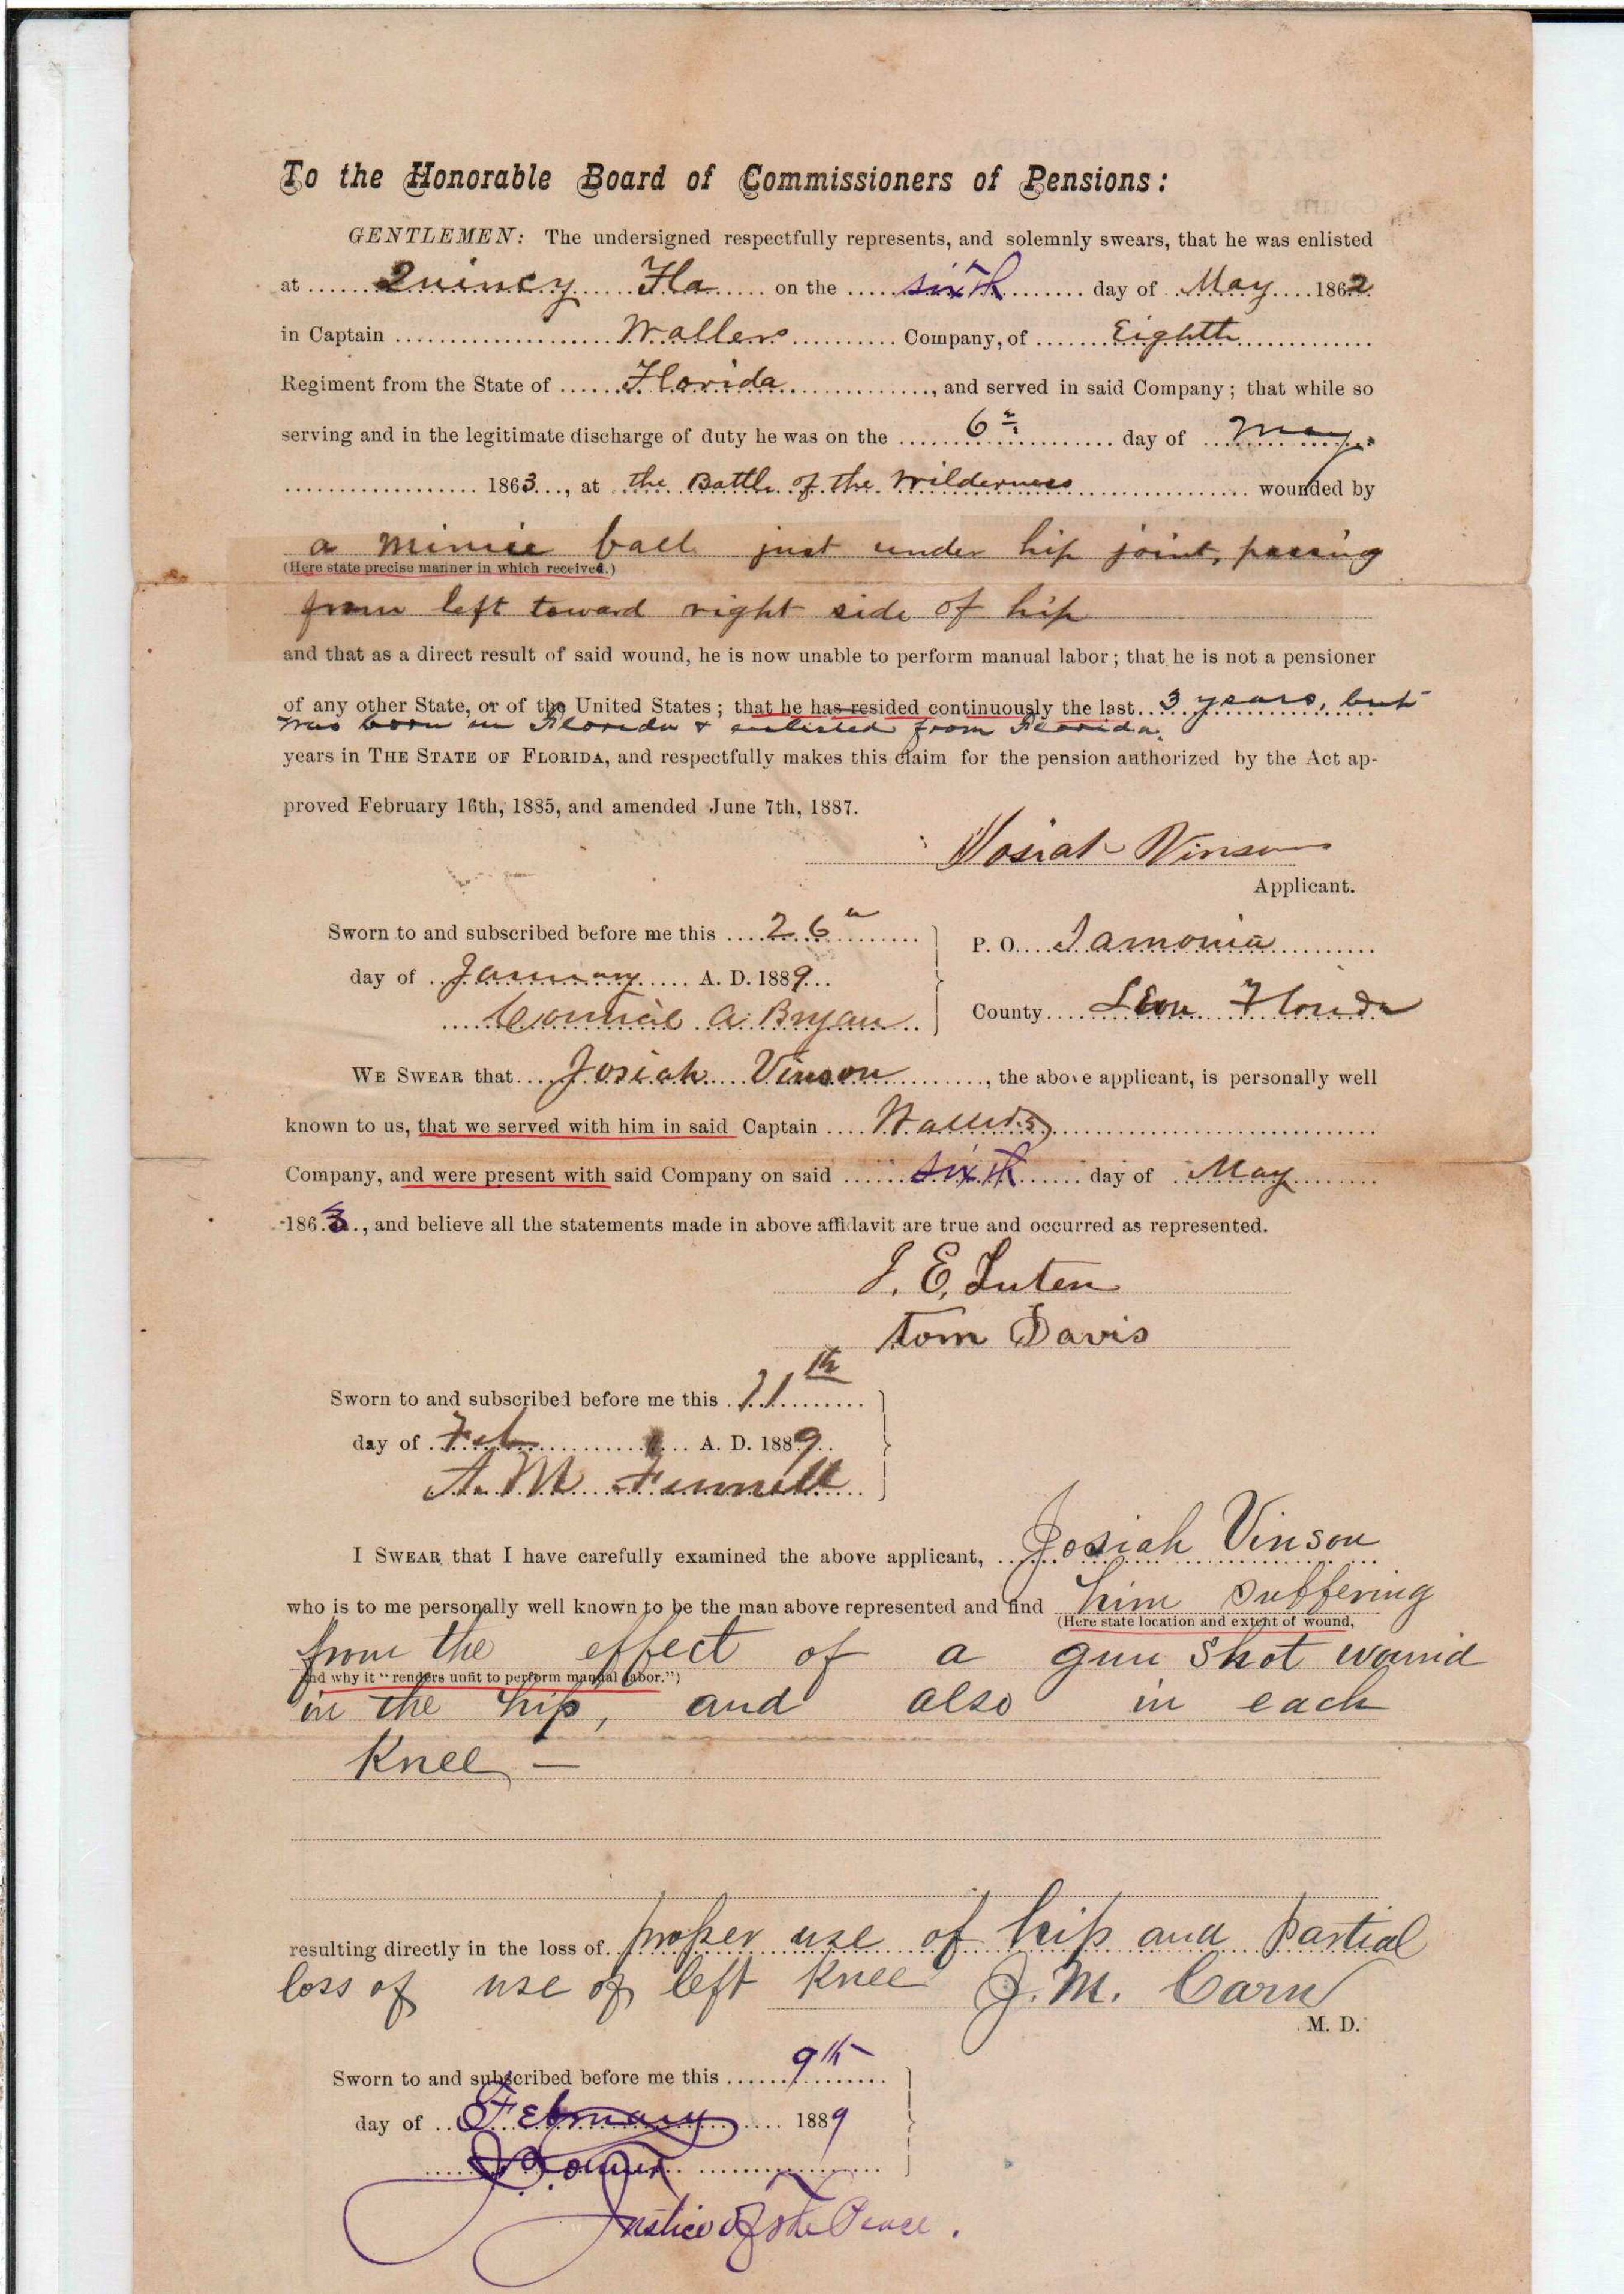 To the Honorable Board of Commissioners of Pensions:
GENTLEMEN: The undersigned respectfully represents, and solemnly swears, that he was enlisted
at Quincy Fla on the sixth day of May 1862
in Captain Wallers Company, of Eighth
Regiment from the State of Florida, and served in said Company; that while so
serving and in the legitimate discharge of duty he was on the 6th day of May
1863, at the Battle of the Wilderness wounded by
a minnie ball just under hip joint, passing
(Here state precise manner in which received.)
from left toward right side of hip
and that as a direct result of said wound, he is now unable to perform manual labor; that he is not a pensioner
of any other State, or of the United States; that he has resided continuously the last 3 years, but
was born in Florida & enlisted from Florida.
years in THE STATE OF FLORIDA, and respectfully makes this claim for the pension authorized by the Act ap-
proved February 16th, 1885, and amended June 7th, 1887.
Josiah Vinson
Applicant.
Sworn to and subscribed before me this 26th
P. O. Iamonia
day of January A. D. 1889
County Leon Florida
Council A. Bryan
WE SWEAR that Josiah Vinson, the above applicant, is personally well
known to us, that we served with him in said Captain Wallers
Company, and were present with said Company on said sixth day of May
1863, and believe all the statements made in above affidavit are true and occurred as represented.
J. E. Luten
Tom Davis
Sworn to and subscribed before me this 11th
day of Feb A. D. 1889
A. M.
I SWEAR that I have carefully examined the above applicant, Josiah Vinson
who is to me personally well known to be the man above represented and find him suffering
(Here state location and extent of wound,
from the effect of a gun shot wound
and why it "renders unfit to perform manual labor.")
in the hip, and also in each
Knee —
resulting directly in the loss of proper use of hip and partial
loss of use of left Knee J. M. Carn
M. D.
Sworn to and subscribed before me this 9th
day of February 1889
Justice of the Peace.